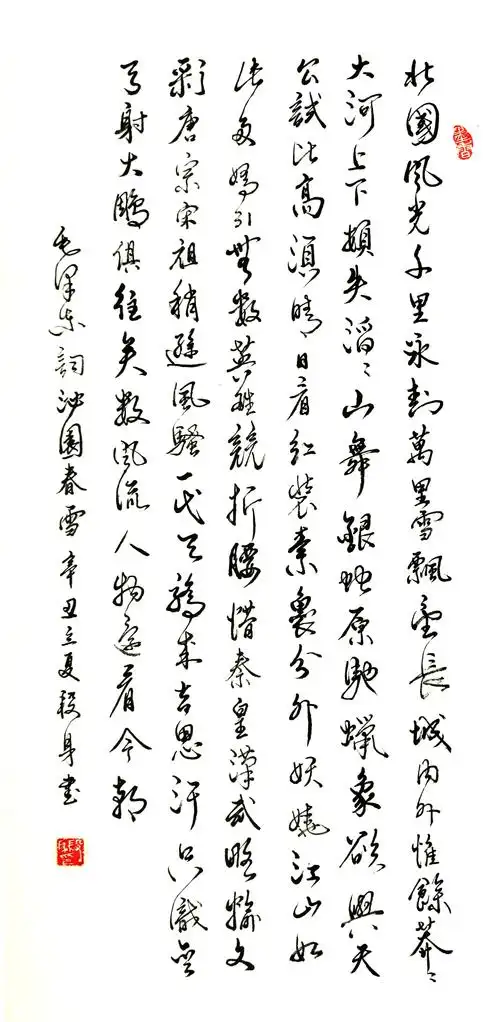 北國風光千里冰封萬里雪飄望長城内外惟餘莽〻
大河上下頓失滔〻山舞銀蛇原馳蠟象欲與天
公試比高須晴日看紅裝素裹分外妖嬈江山如
此多嬌引無數英雄競折腰惜秦皇漢武略輸文
彩唐宗宋祖稍遜風騷一代天驕成吉思汗只識彎
弓射大鵰俱往矣數風流人物還看今朝
毛澤東詞沁園春雪辛丑立夏段身書